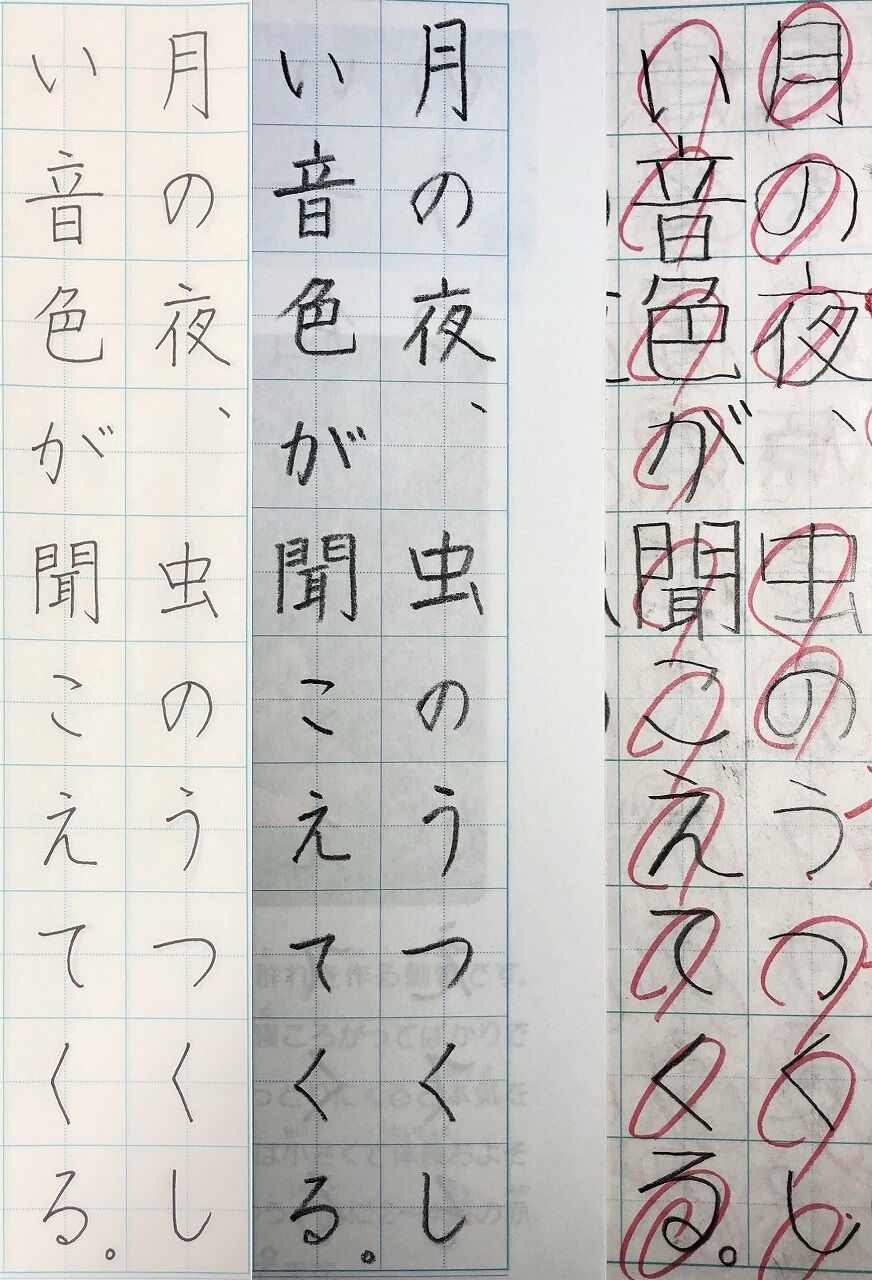 月の夜、虫のうつくし
い音色が聞こえてくる。
月の夜、虫のうつくし
い音色が聞こえてくる。
月の夜、虫のうつくし
い音色が聞こえてくる。